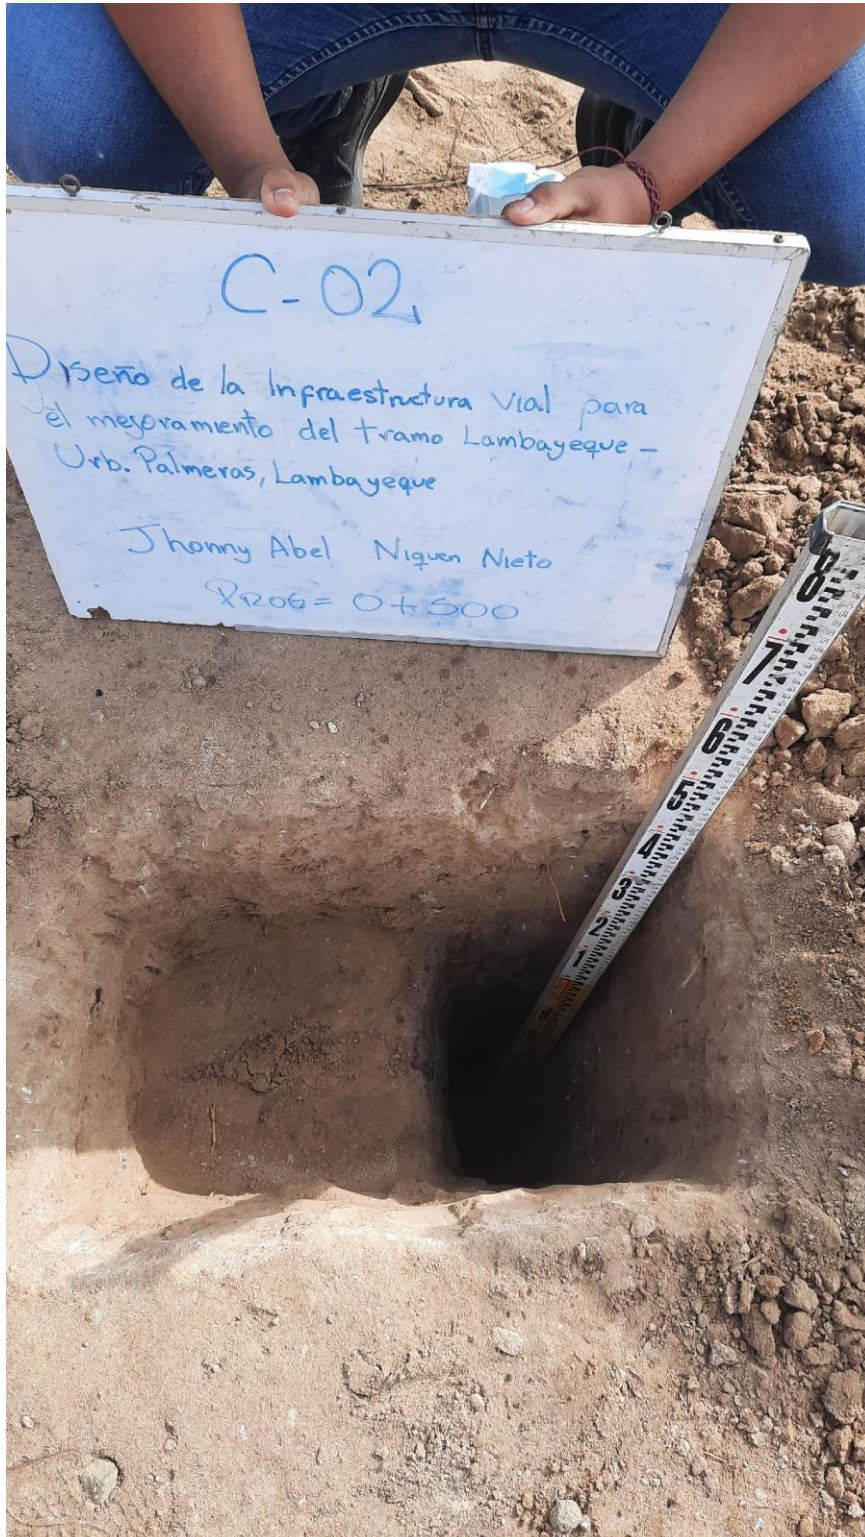 C-02
Diseño de la Infraestructura Vial para
el mejoramiento del tramo Lambayeque -
Urb. Palmeras, Lambayeque
Jhonny Abel Niquen Nieto
PROG = 0+500
8
7
6
5
4
3
2
1